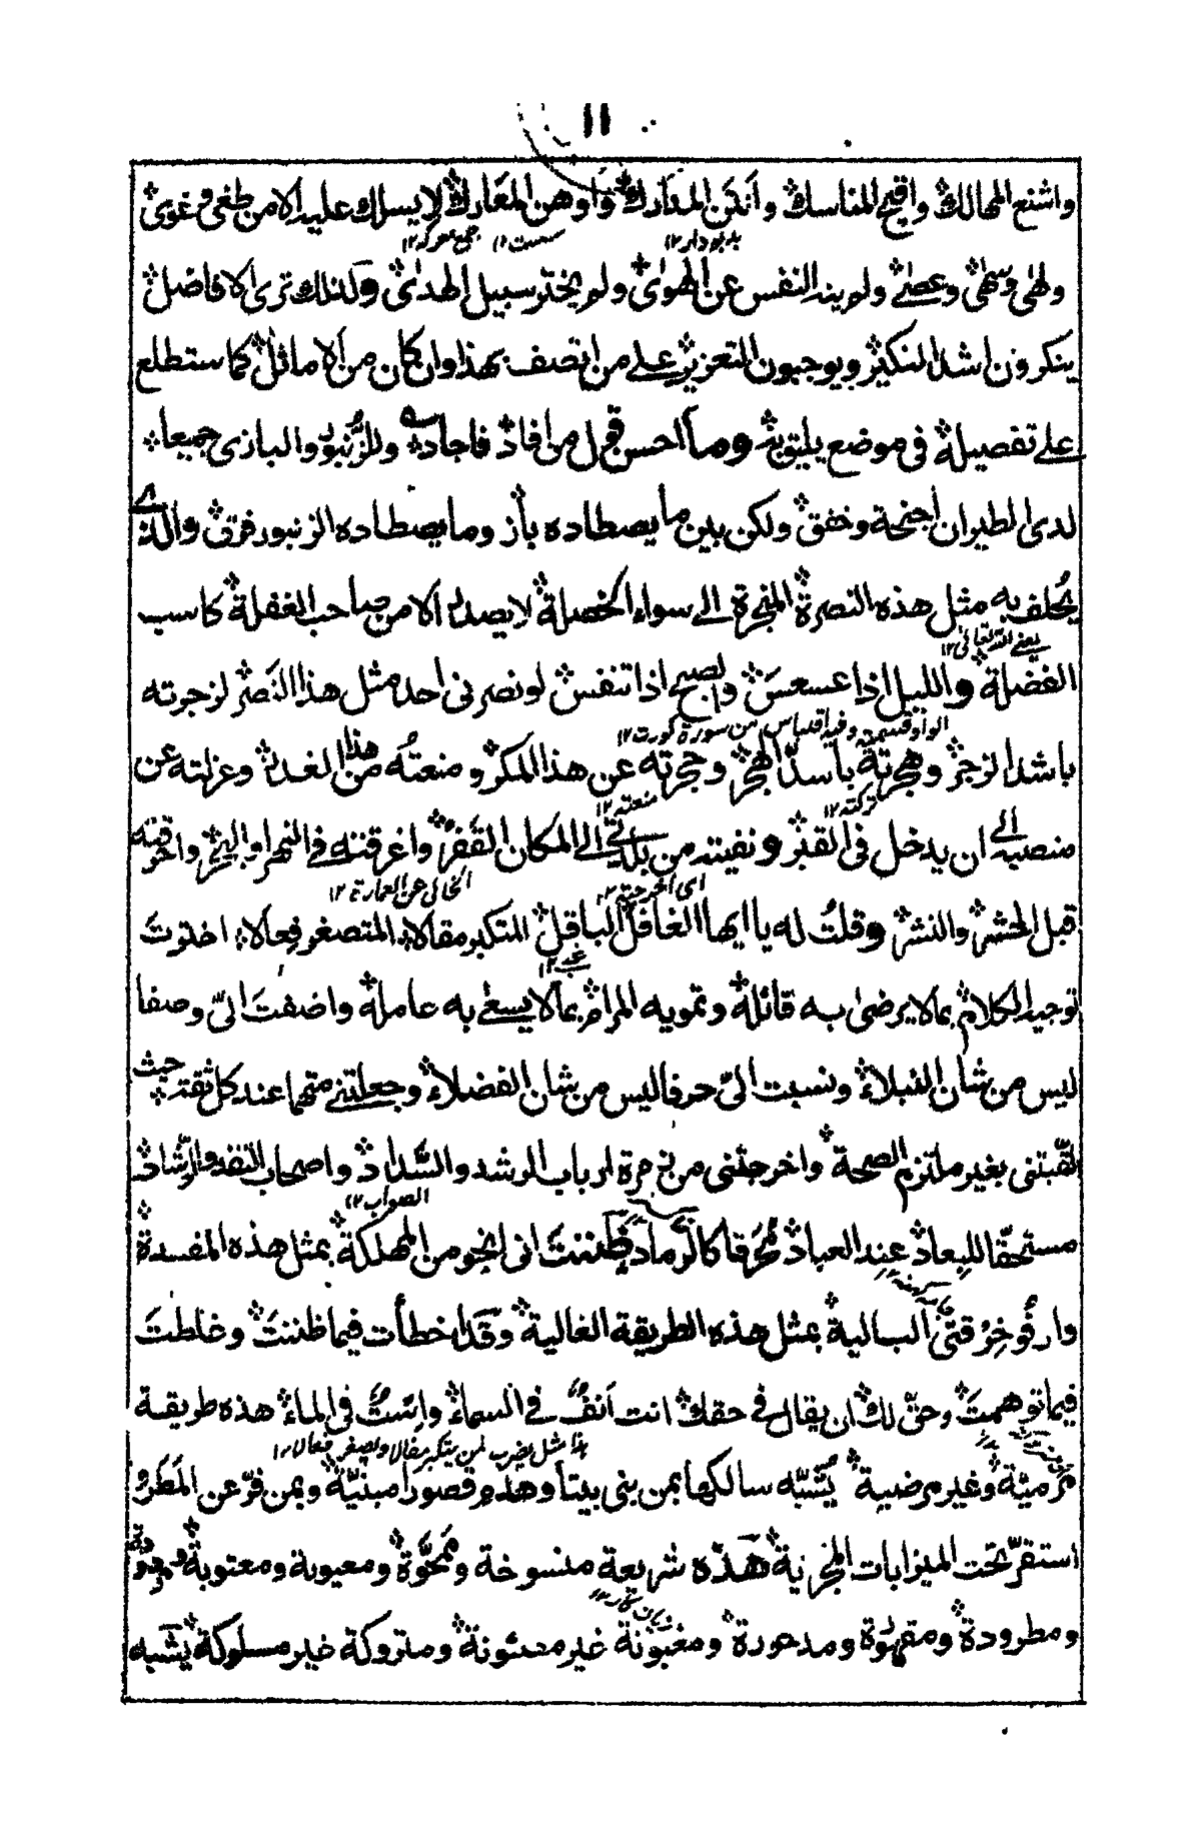 ١١
واشنع المهالك واقبح المناسك وأنتن المدارك وأوهن المعارك لا يسلك عليه الا من طغى وغوى
بدبودار ١٢ سست ١٢ جمع معركه ١٢
ولهى وسهى وعصى ولم ينه النفس عن الهوى ولم يختر سبيل الهدى ولذلك ترى الافاضل
ينكرون اشد النكير ويوجبون التعزير على من اتصف بهذا وان كان من الاماثل كما ستطلع
على تفصيله في موضع يليق به وما احسن قول من افاد فاجاد وللزنبور والبازى جميعا
لدى الطيران اجنحة وخفق ولكن بين ما يصطاده باز وما يصطاده الزنبور فرق والذي
يحلف به مثل هذه النصرة المنجرة الى سواء الخصلة لا يصدر الا من صاحب الغفلة كاسب
يعني الله تعالى ١٢
الفضلة والليل اذا عسعس والصبح اذا تنفس لو نصرنى احد مثل هذا النصر لزجرته
الواو قسمية وفيه اقتباس من سورة كورت ١٢
باشد الزجر وهجرته باسد الهجر وحجرته عن هذا المكر ومنعته من هذا الغدر وعزلته عن
تركته ١٢ منعته ١٢
منصبه الى ان يدخل في القبر ونفيته من بلدتي الى المكان القفر واغرقته في النهر او البحر واحرقته
اى اخرجته ١٢ الخالى عن العمارة ١٢
قبل الحشر والنشر وقلت له يا ايها الغافل الباقل المتكبر مقالا المتصغر فعالا اخترت
توجيه الكلام بما لا يرضى به قائله وتمويه المرام بما لا يسعى به عامله واضفت الىّ وصفا
ليس من شان النبلاء ونسبت الىّ حرفا ليس من شان الفضلاء وجعلتني متهما عند كل ثقة حيث
لقّبتنى بغير ملتزم الصحة واخرجتنى من زمرة ارباب الرشد والسّداد واصحاب النقد والرشاد
الصواب ١٢
مستحقا للبعاد عند العباد محرقا كالرماد ظننت انى انجو من المهلكة بمثل هذه المفسدة
وارفو خرقتى البالية بمثل هذه الطريقة الغالية وقد اخطأت فيما ظننت وغلطت
فيما توهمت وحق لك ان يقال في حقك انت أنف في السماء واست في الماء هذه طريقة
هذا مثل يضرب لمن يتكبر مقالا ويصغر فعالا ١٢
مرميّة وغير مرضية يشبّه سالكها بمن بنى بيتا وهدم قصورا مبنيّة وبمن فرّ عن المطر و
استقرّ تحت الميزابات المخزنية هذه شريعة منسوخة وممحوّة ومعيوبة ومعتوبة
ومطرودة ومقهورة ومدحورة ومغبونة غير مسئونة ومتروكة غير مسلوكة يشبه